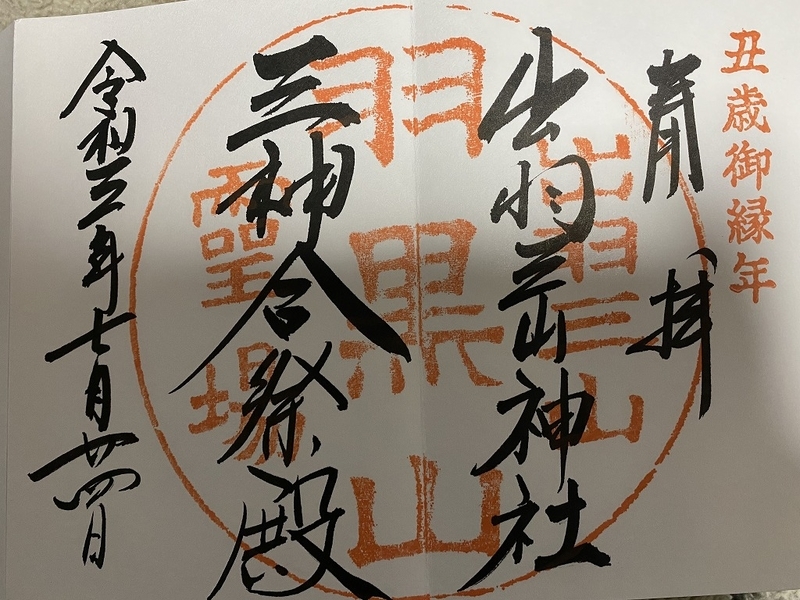 丑歳御縁年
奉拝
出羽三山神社
三神合祭殿
令和三年七月廿四日
出羽三山
羽黒山
霊場